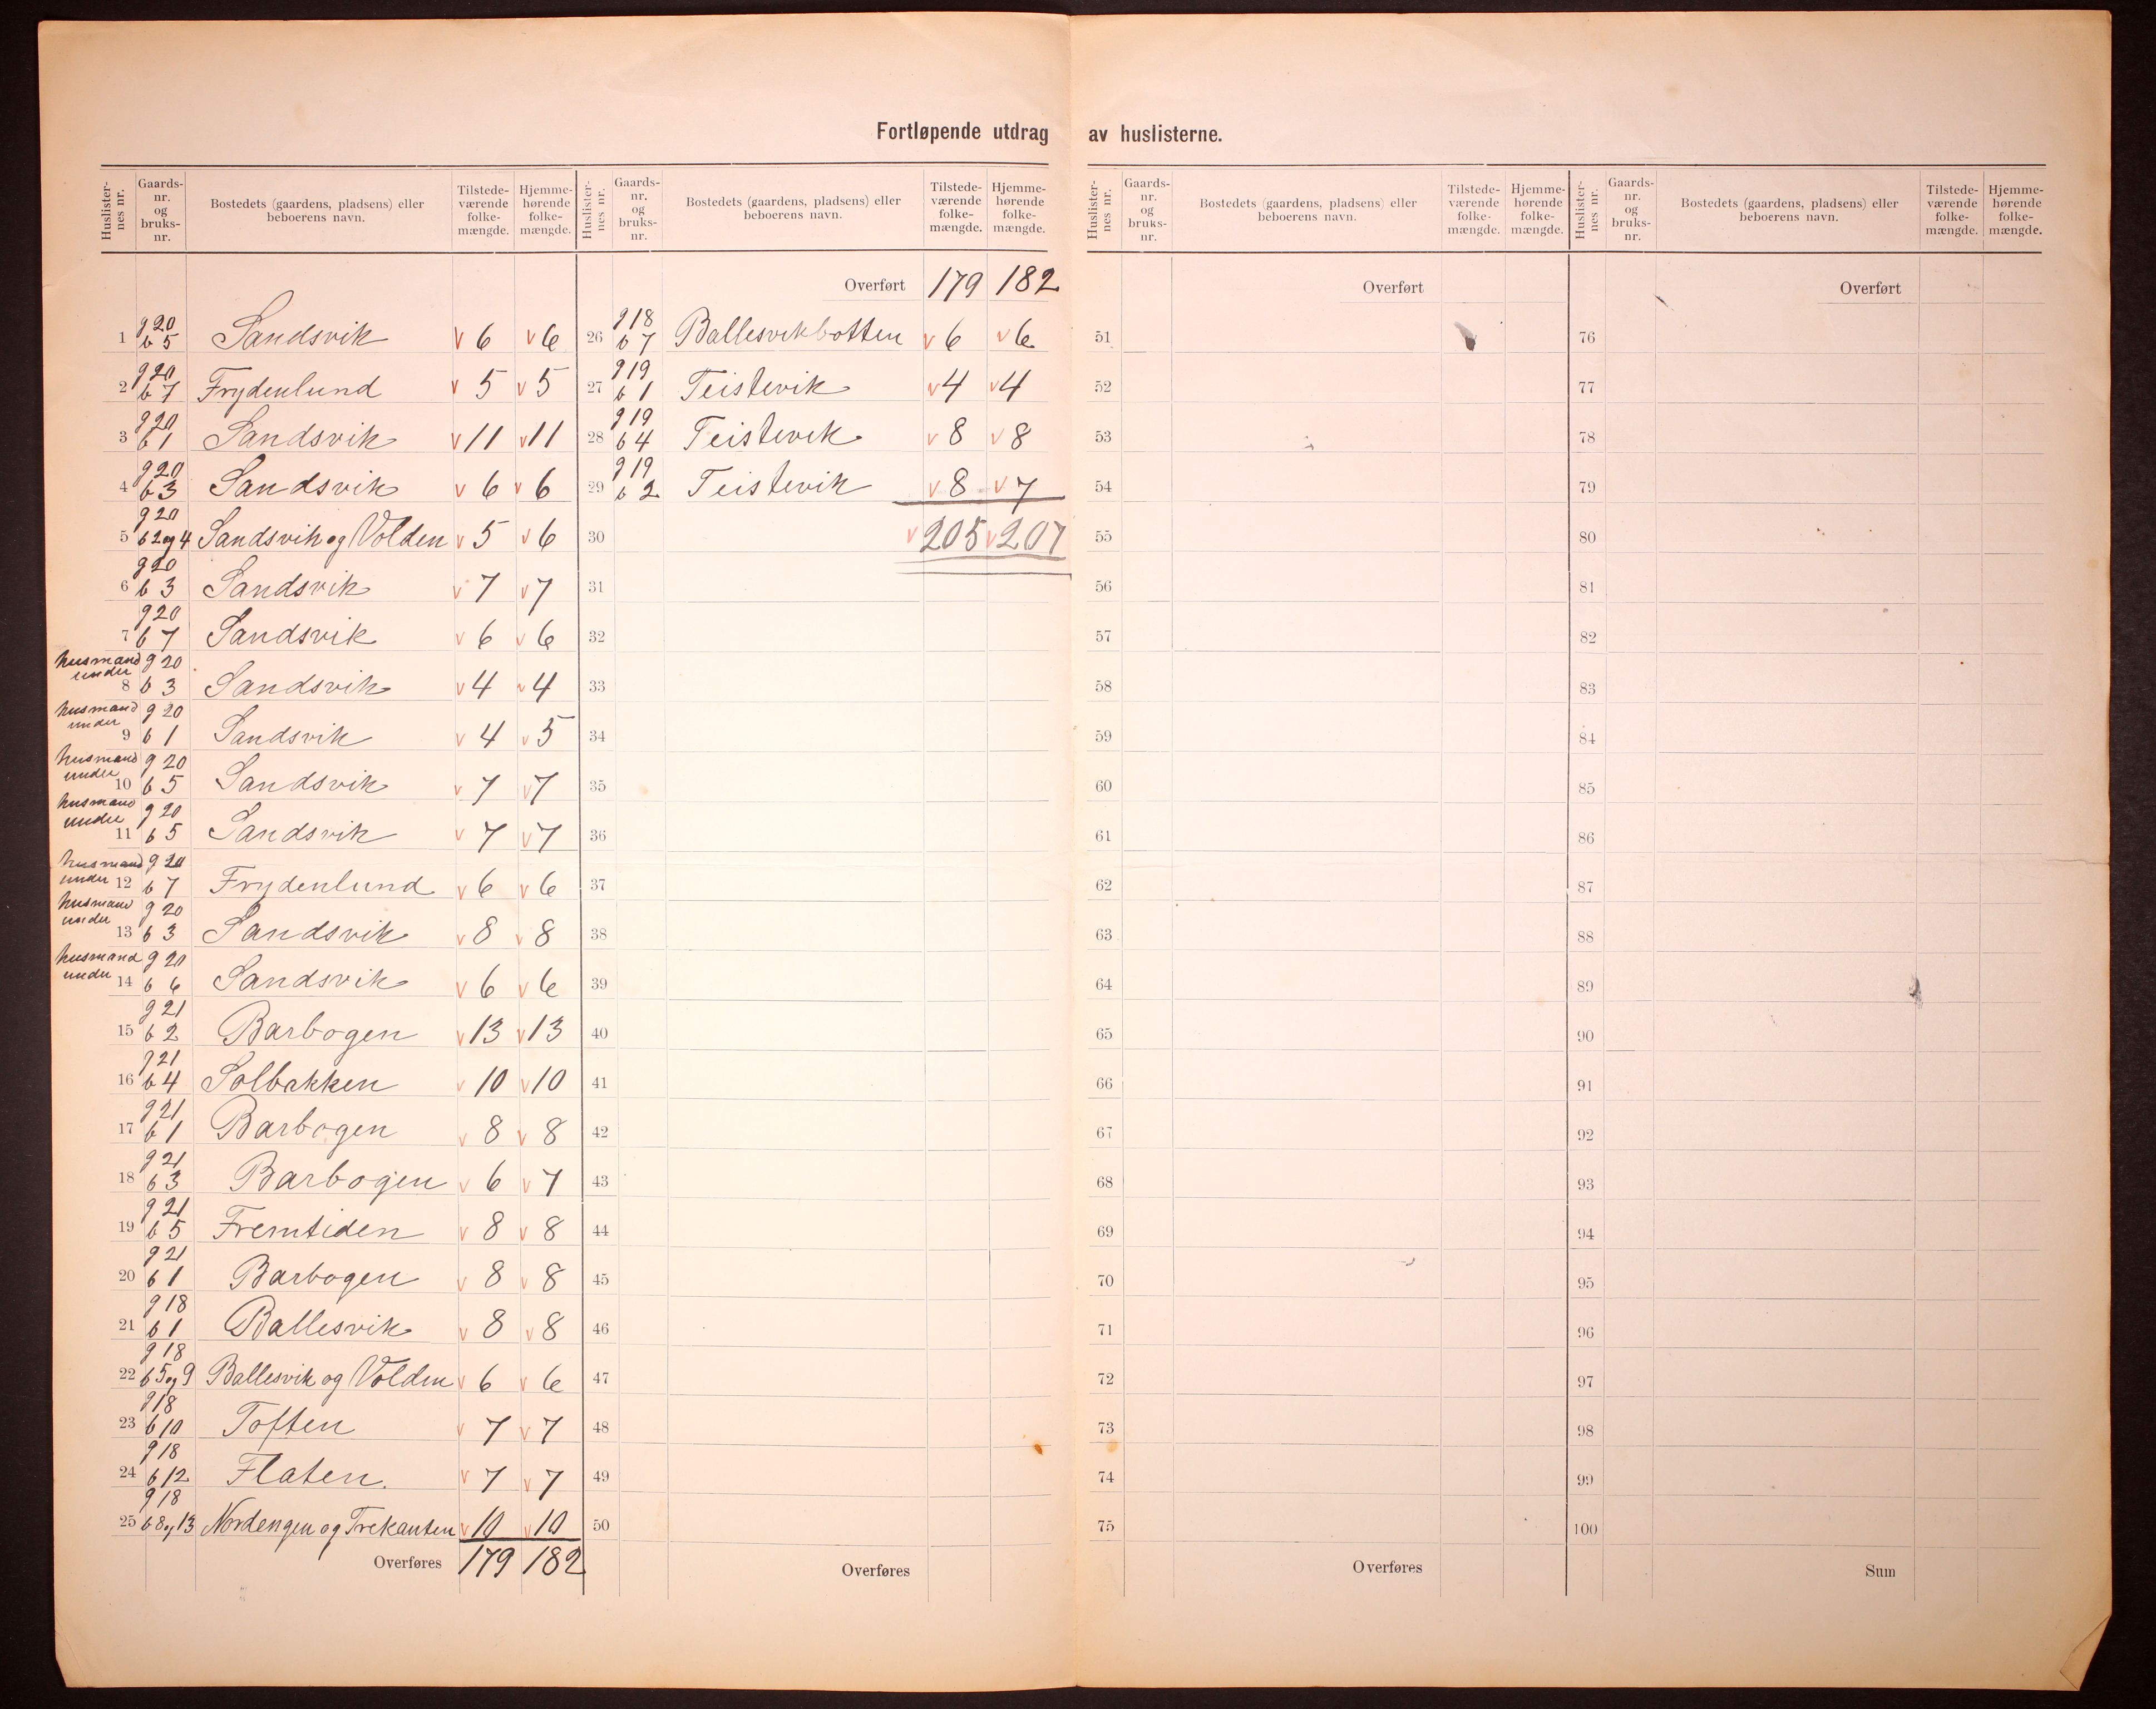 Fortløpende utdrag av huslisterne.
Huslisternes nr. Gaards-nr. og bruks-nr. Bostedets (gaardens, pladsens) eller beboerens navn. Tilstede-værende folke-mængde. Hjemme-hørende folke-mængde.
1 g 20 b 5 Sandsvik v 6 v 6
2 g 20 b 7 Frydenlund v 5 v 5
3 g 20 b 1 Sandsvik v 11 v 11
4 g 20 b 3 Sandsvik v 6 v 6
5 g 20 b 2 og 4 Sandsvik og Volden v 5 v 6
6 g 20 b 3 Sandsvik v 7 v 7
7 g 20 b 7 Sandsvik v 6 v 6
husmand under 8 g 20 b 3 Sandsvik v 4 v 4
husmand under 9 g 20 b 1 Sandsvik v 4 v 5
husmand under 10 g 20 b 5 Sandsvik v 7 v 7
husmand under 11 g 20 b 5 Sandsvik v 7 v 7
husmand under 12 g 20 b 7 Frydenlund v 6 v 6
husmand under 13 g 20 b 3 Sandsvik v 8 v 8
husmand under 14 g 20 b 6 Sandsvik v 6 v 6
15 g 21 b 2 Barbogen v 13 v 13
16 g 21 b 4 Solbakken v 10 v 10
17 g 21 b 1 Barbogen v 8 v 8
18 g 21 b 3 Barbogen v 6 v 7
19 g 21 b 5 Fremtiden v 8 v 8
20 g 21 b 1 Barbogen v 8 v 8
21 g 18 b 1 Ballesvik v 8 v 8
22 g 18 b 5 og 9 Ballesvik og Volden v 6 v 6
23 g 18 b 10 Toften v 7 v 7
24 g 18 b 12 Flaten. v 7 v 7
25 g 18 b 8 og 13 Nordengen og Trekanten v 10 v 10
Overføres 179 182
Huslisternes nr. Gaards-nr. og bruks-nr. Bostedets (gaardens, pladsens) eller beboerens navn. Tilstede-værende folke-mængde. Hjemme-hørende folke-mængde.
Overført 179 182
26 g 18 b 7 Ballesvikbotten v 6 v 6
27 g 19 b 1 Teistevik v 4 v 4
28 g 19 b 4 Teistevik v 8 v 8
29 g 19 b 2 Teistevik v 8 v 7
30 v 205 v 207
31
32
33
34
35
36
37
38
39
40
41
42
43
44
45
46
47
48
49
50
Overføres
Huslisternes nr. Gaards-nr. og bruks-nr. Bostedets (gaardens, pladsens) eller beboerens navn. Tilstede-værende folke-mængde. Hjemme-hørende folke-mængde.
Overført
51
52
53
54
55
56
57
58
59
60
61
62
63
64
65
66
67
68
69
70
71
72
73
74
75
Overføres
Huslisternes nr. Gaards-nr. og bruks-nr. Bostedets (gaardens, pladsens) eller beboerens navn. Tilstede-værende folke-mængde. Hjemme-hørende folke-mængde.
Overført
76
77
78
79
80
81
82
83
84
85
86
87
88
89
90
91
92
93
94
95
96
97
98
99
100
Sum